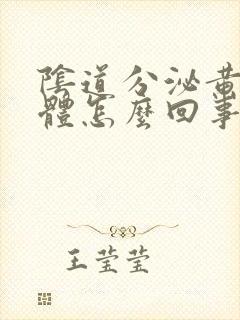 陰道分泌黃
體怎麼回事
王莹莹